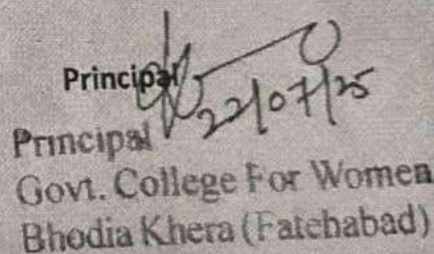 Principal
22/07/25
Principal
Govt. College For Women
Bhodia Khera (Fatehabad)